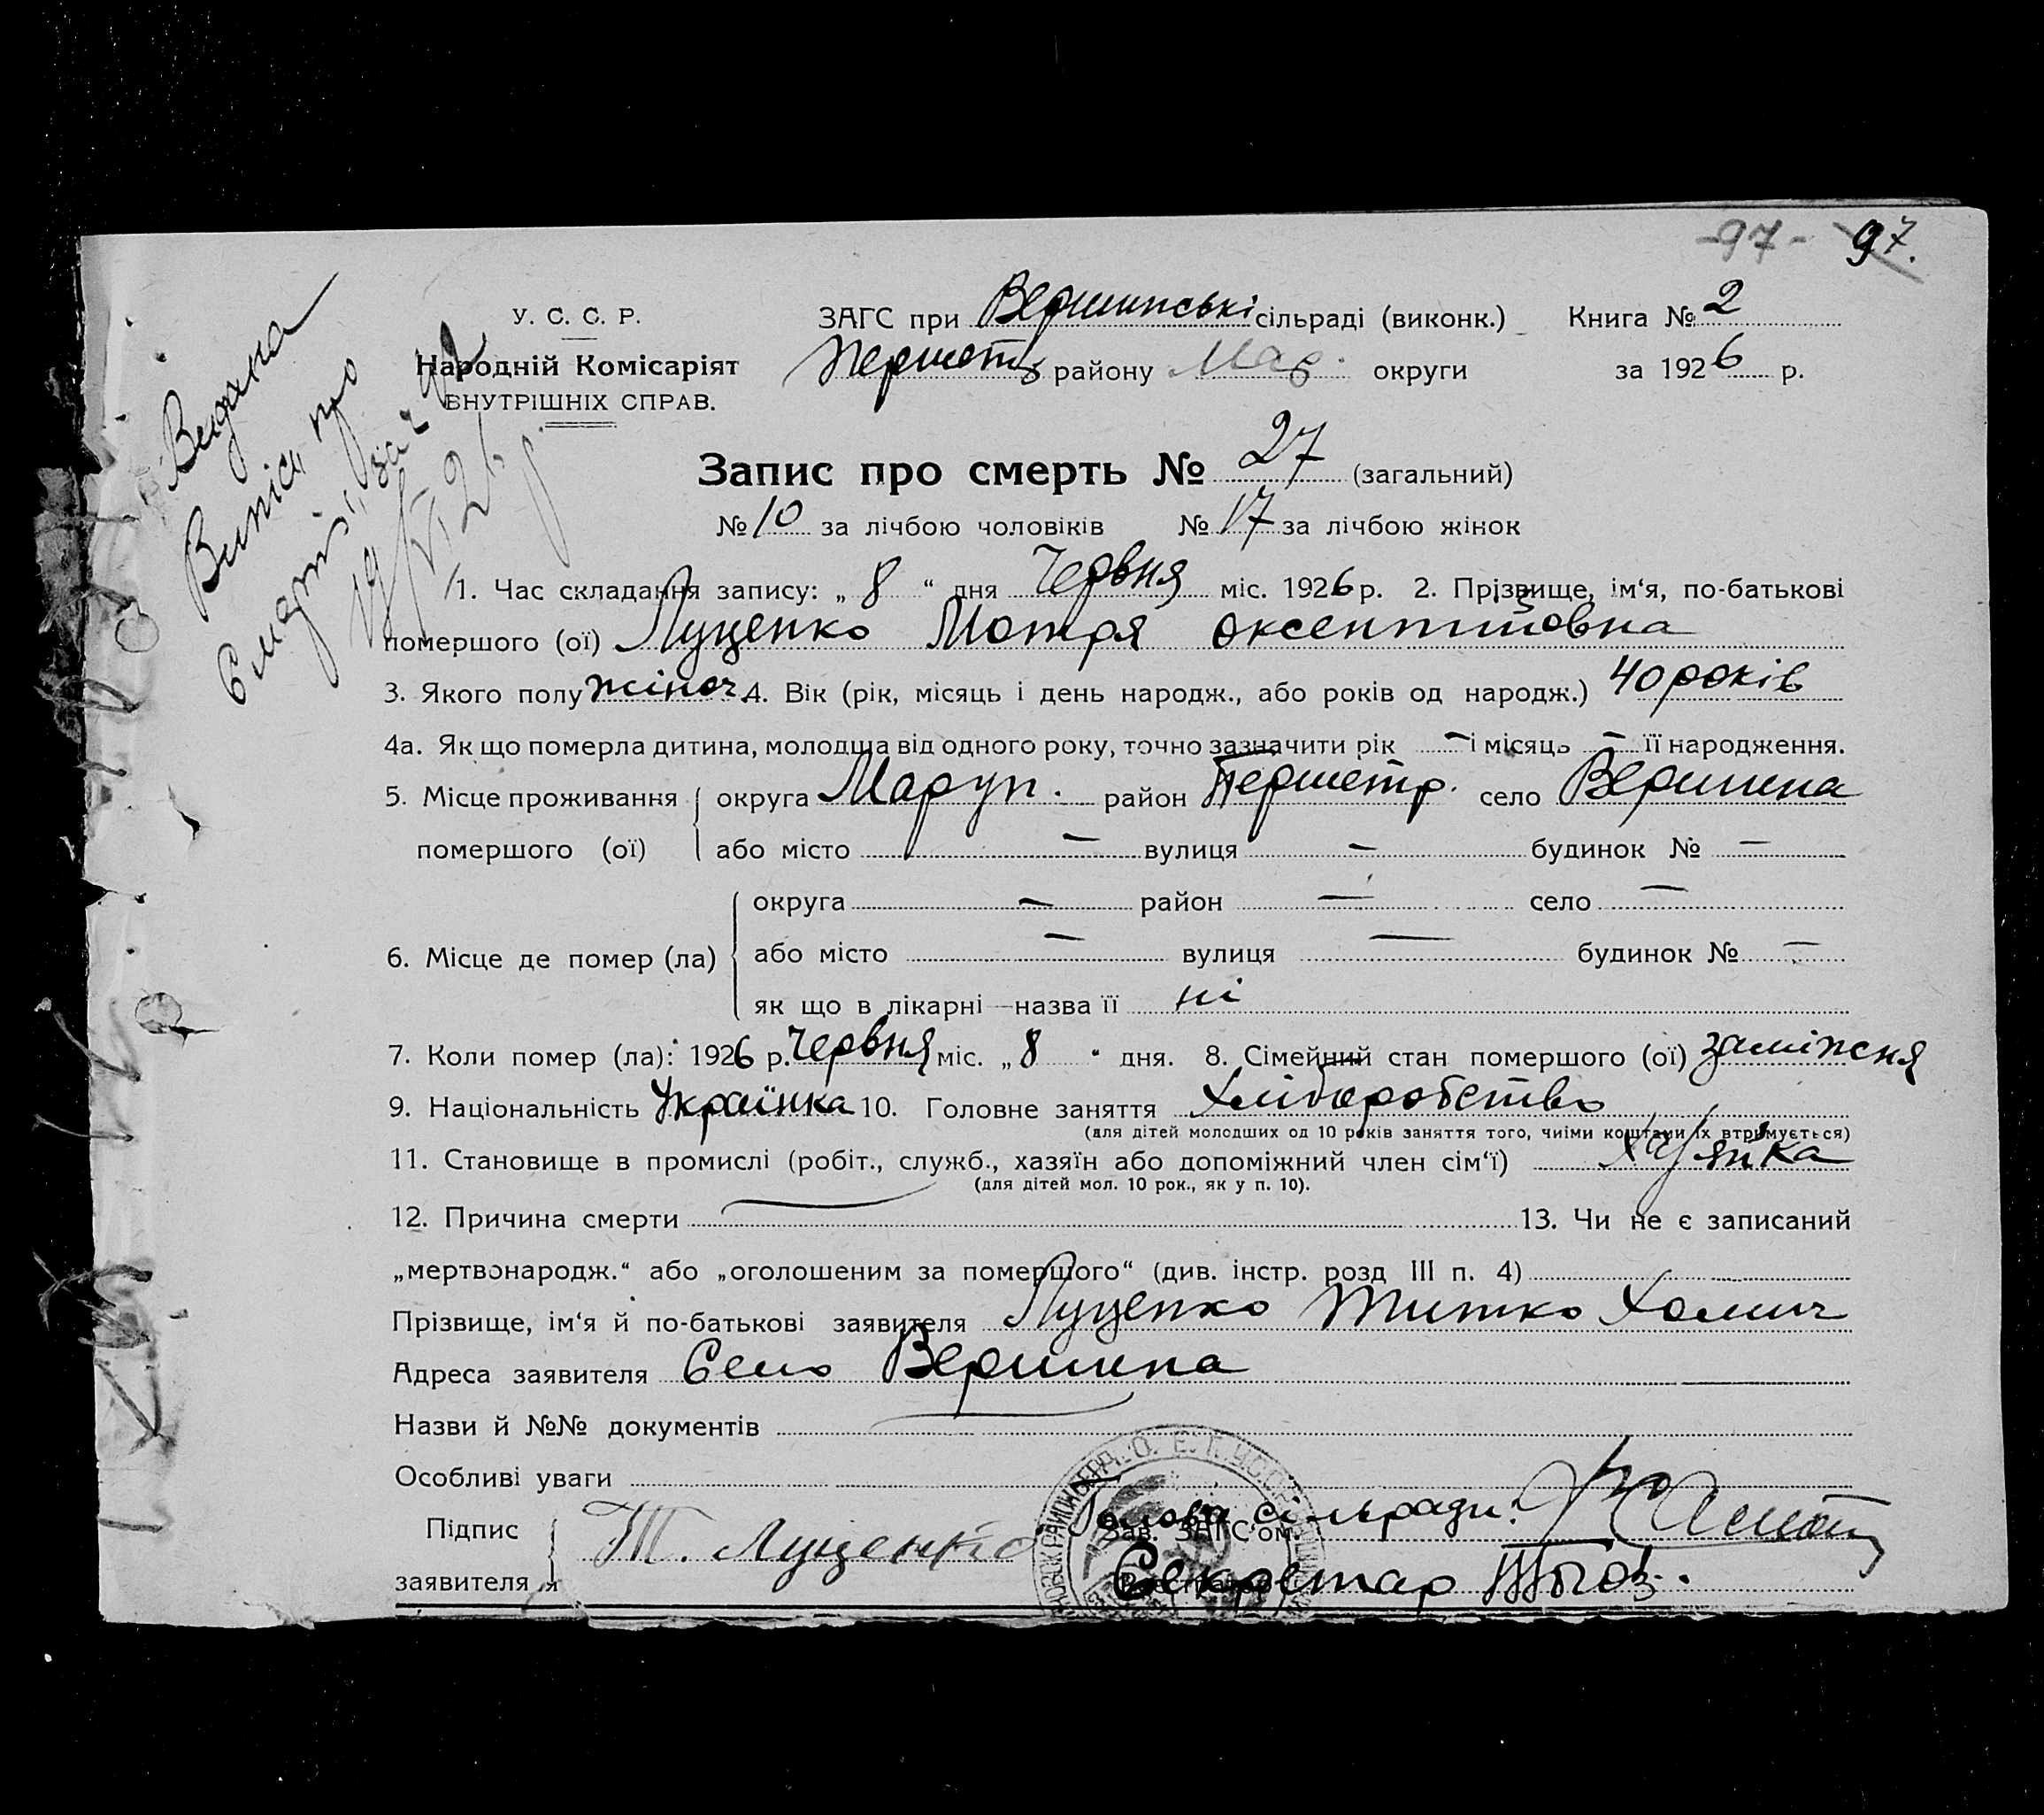 -97- 97.
У. С. С. Р.
Народній Комісаріят
ВНУТРІШНІХ СПРАВ.
ЗАГС при Вершинські сільраді (виконк.) Книга № 2
Першотр району Мар. округи за 1926 р.
Видана
Випісь про
смерть за ч
19/VI 26 р
Запис про смерть № 27 (загальний)
№ 10 за лічбою чоловіків № 17 за лічбою жінок
1. Час складання запису: „ 8 “ дня Червня міс. 1926 р. 2. Прізвище, ім‘я, по-батькові
помершого (ої) Луценко Мотря Оксентіївовна
3. Якого полу жіноч. 4. Вік (рік, місяць і день народж., або років од народж.) 40 років
4а. Як що померла дитина, молодша від одного року, точно зазначити рік — і місяць — її народження.
5. Місце проживання округа Маруп. район Першотр. село Вершина
помершого (ої) або місто — вулиця — будинок № —
округа — район — село —
6. Місце де помер (ла) або місто — вулиця — будинок № —
як що в лікарні—назва її ні
7. Коли помер (ла): 1926 р. Червня міс. „ 8 “ дня. 8. Сімейний стан помершого (ої) заміжня
9. Національність Українка 10. Головне заняття Хліборобство
(для дітей молодших од 10 років заняття того, чиїми коштами їх втримується)
11. Становище в промислі (робіт., служб., хазяїн або допоміжний член сім‘ї) Хазяйка
(для дітей мол. 10 рок., як у п. 10).
12. Причина смерти — 13. Чи не є записаний
„мертвонародж.“ або „оголошеним за помершого“ (див. інстр. розд III п. 4)
Прізвище, ім‘я й по-батькові заявителя Луценко Титко Хомич
Адреса заявителя Село Вершина
Назви й №№ документів —
Особливі уваги
Підпис Т. Луценко Голова сільради:
Зав. ЗАГС‘ом
заявителя Секретар